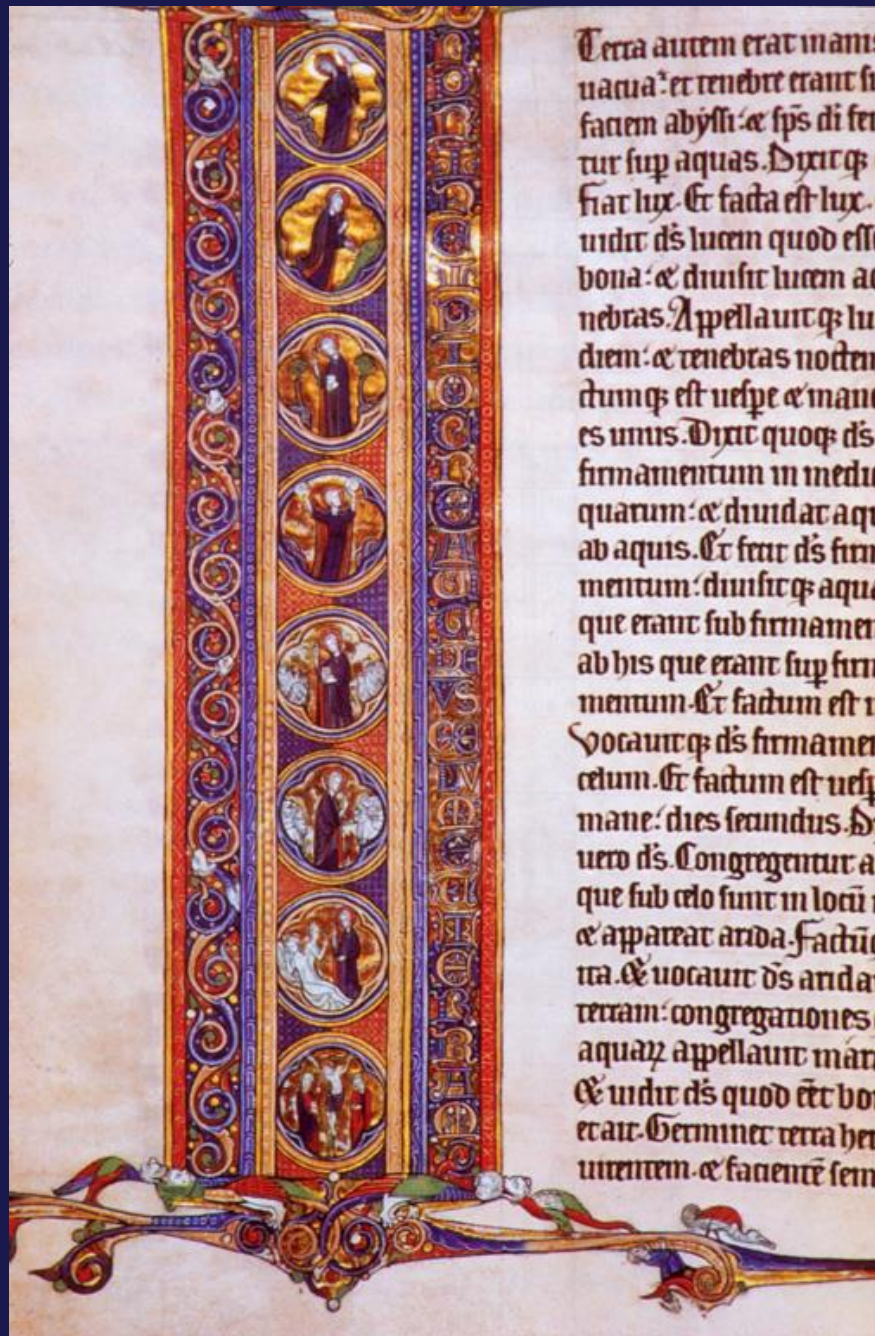 Terra autem erat inanis
uacua: et tenebre erant su
faciem abyssi: & sps di fer
tur sup aquas. Dixitq;
Fiat lux. Et facta est lux.
uidit ds lucem quod esse
bona: & diuisit lucem ac
nebras. Appellauitq; lu
diem: & tenebras noctem
ctumq; est uespe & mane
es unus. Dixit quoq; ds
firmamentum in mediu
quarum: & diuidat aqu
ab aquis. Et fecit ds firm
mentum: diuisitq; aqua
que erant sub firmamen
ab his que erant sup firm
mentum. Et factum est i
Vocauitq; ds firmamen
celum. Et factum est uesp
mane: dies secundus. D
uero ds. Congregentur a
que sub celo sunt in locū
& appareat arida. Factūq
ita. & uocauit ds arida
terram: congregationes
aquaꝝ appellauit mari
& uidit ds quod eēt bon
et ait. Germinet terra her
uirentem. & facientē sem